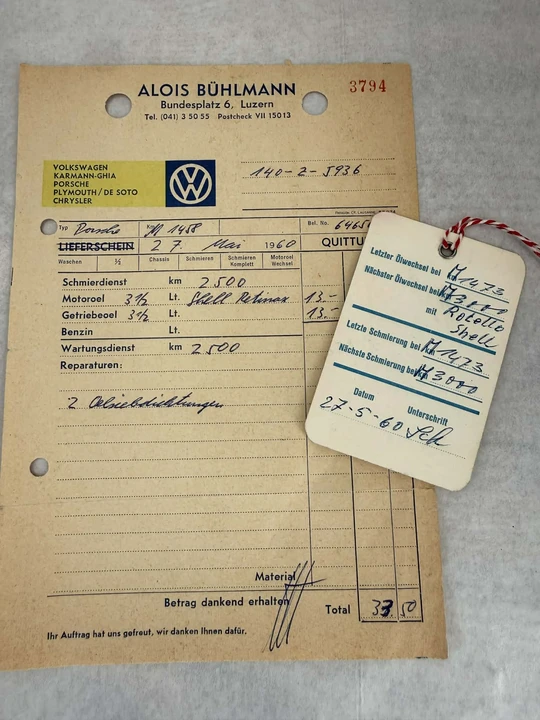 ALOIS BÜHLMANN
3794
Bundesplatz 6, Luzern
Tel. (041) 3 50 55 Postcheck VII 15013
VOLKSWAGEN
KARMANN-GHIA
PORSCHE
PLYMOUTH/DE SOTO
CHRYSLER
VW
140-2-5936
Typ Porsche Km M 1458 Bel. No.
LIEFERSCHEIN 27. Mai 1960 QUITTU
Waschen ½ Chassis Schmieren Schmieren Komplett Motoröl Wechsel
Schmierdienst km 2500
Motoroel 3½ Lt. Shell Retinax 13.-
Getriebeoel 3½ Lt. 13.-
Benzin Lt.
Wartungsdienst km 2500
Reparaturen:
2 Oelsiebdichtungen
Material
Betrag dankend erhalten Total 33 50
Ihr Auftrag hat uns gefreut, wir danken Ihnen dafür.
Letzter Ölwechsel bei M 1473
Nächster Ölwechsel bei M 3000
mit Rotella
Shell
Letzte Schmierung bei M 1473
Nächste Schmierung bei M 3000
Datum Unterschrift
27-5-60